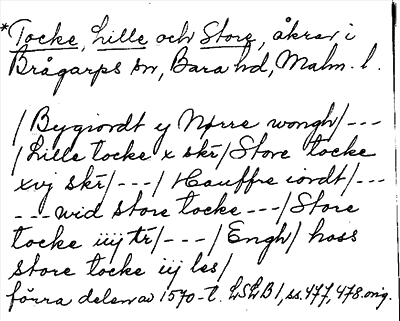 *Tocke, Lille och Store, åkrar i
Brågarps sn, Bara hd, Malm. l.
/Bygiordt y Nørre wongh/---
/Lille tocke x skr̄/Store tocke
xvj skr̄/---/Hauffre iordt/---
---wid store tocke---/Store
tocke iiij tr̄/---/Engh/hoss
store tocke iij les/
förra delen av 1570-t. LSLB 1, ss. 477, 478. orig.